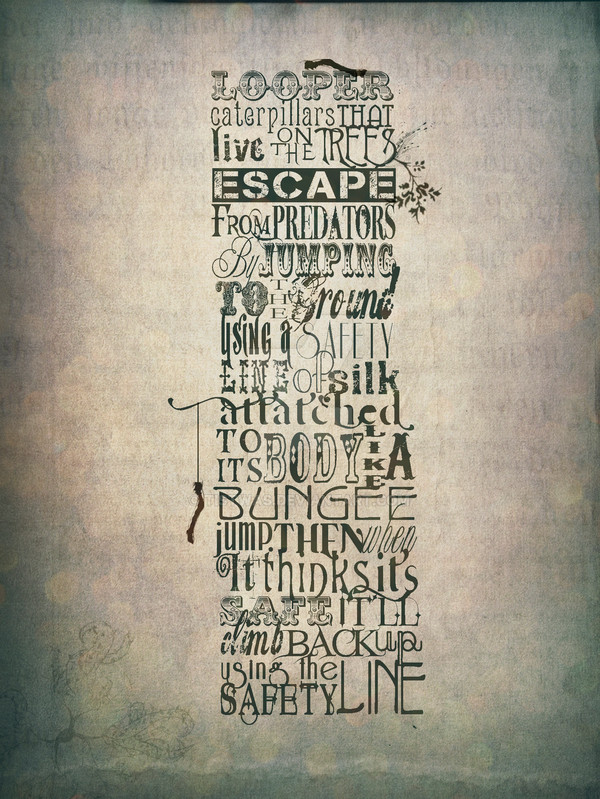 LOOPER
caterpillars THAT
live ON THE TREES
ESCAPE
FROM PREDATORS
By JUMPING
TO THE Ground
using a SAFETY
LINE of silk
attatched
TO ITS BODY LIKE A
BUNGEE
jump THEN when
It thinks its
SAFE IT'LL
climb BACK up
using the
SAFETY LINE